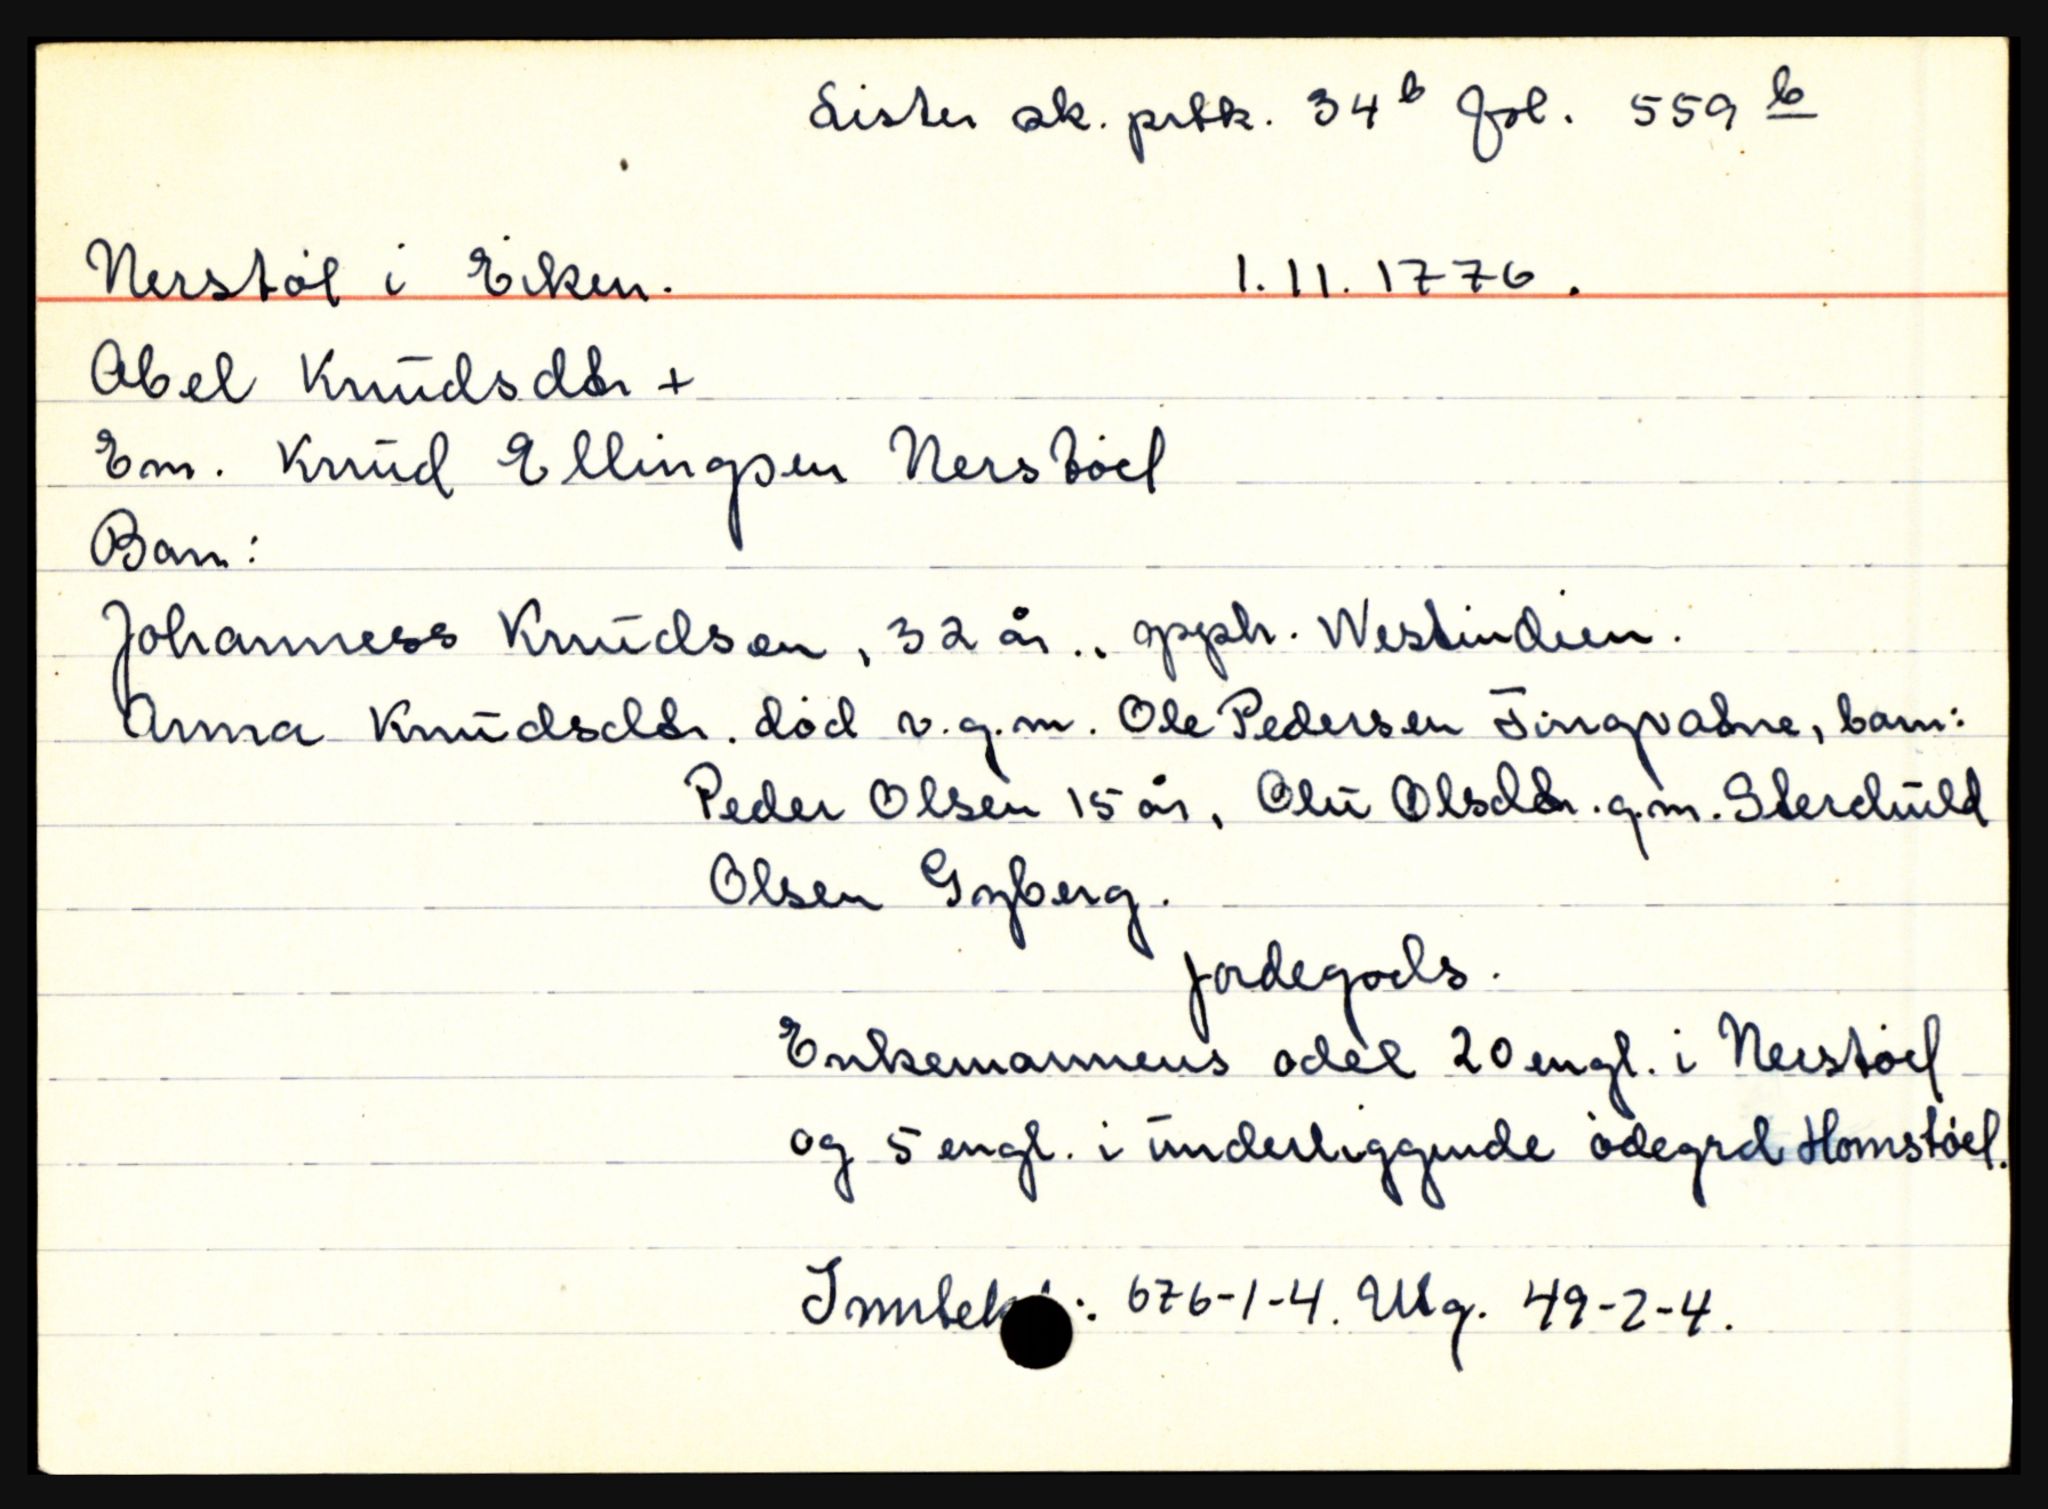 Lister sk. prtk. 34 b fol. 559 b
Nerstøl i Eiken. 1.11.1776.
Abel Knudsdtr +
Em. Knud Ellingsen Nerstøel
Barn:
Johanness Knudsen, 32 år., opph. Westindien.
Anna Knudsdtr. død v.g.m. Ole Pedersen Tingvatne, barn:
Peder Olsen 15 år, Olu Olsdtr. g.m. Sterchuld
Olsen Gyberg.
jordegods.
Enkemannens odel 20 engl. i Nerstøel
og 5 engl. i underliggende ødegrd Homstøel.
Inntekt: 676-1-4. Utg. 49-2-4.